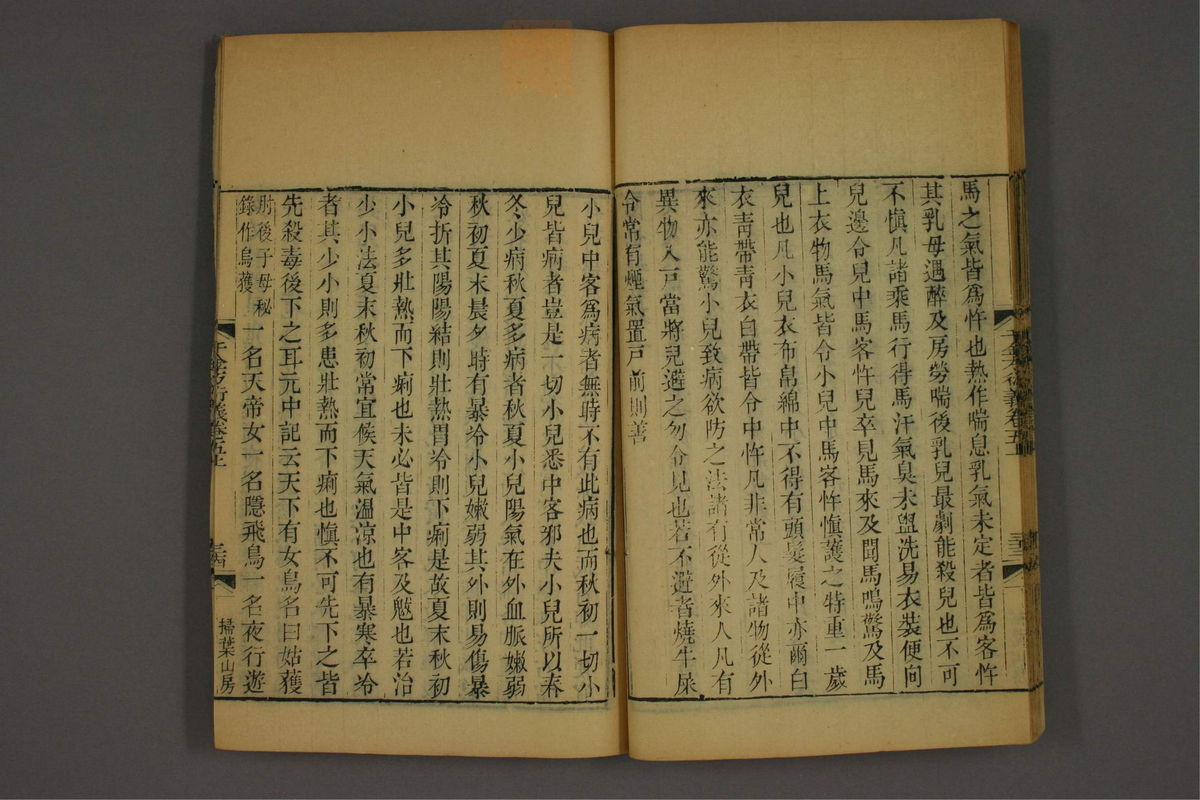 馬之氣皆爲忤也熱作喘息乳氣未定者皆爲客忤
其乳母遇醉及房勞喘後乳兒最劇能殺兒也不可
不愼凡諸乘馬行得馬汗氣臭未盥洗易衣裝便向
兒邊令兒中馬客忤兒卒見馬來及聞馬鳴驚及馬
上衣物馬氣皆令小兒中馬客忤愼護之特重一歲
兒也凡小兒衣布帛綿中不得有頭髮履中亦爾白
衣靑帶靑衣白帶皆令中忤凡非常人及諸物從外
來亦能驚小兒致病欲防之法諸有從外來人凡有
異物入戸當將兒避之勿令見也若不避者燒牛屎
令常有煙氣置戸前則善
小兒中客爲病者無時不有此病也而秋初一切小
兒皆病者豈是一切小兒悉中客邪夫小兒所以春
冬少病秋夏多病者秋夏小兒陽氣在外血脈嫩弱
秋初夏末晨夕時有暴冷小兒嫩弱其外則易傷暴
冷折其陽陽結則壯熱胃冷則下痢是故夏末秋初
小兒多壯熱而下痢也未必皆是中客及鬾也若治
少小法夏末秋初常宜候天氣溫凉也有暴寒卒冷
者其少小則多患壯熱而下痢也愼不可先下之皆
先殺毒後下之耳元中記云天下有女鳥名曰姑獲
肘後子母秘
錄作烏獲
一名天帝女一名隱飛鳥一名夜行遊
千金方衍義卷五上
掃葉山房